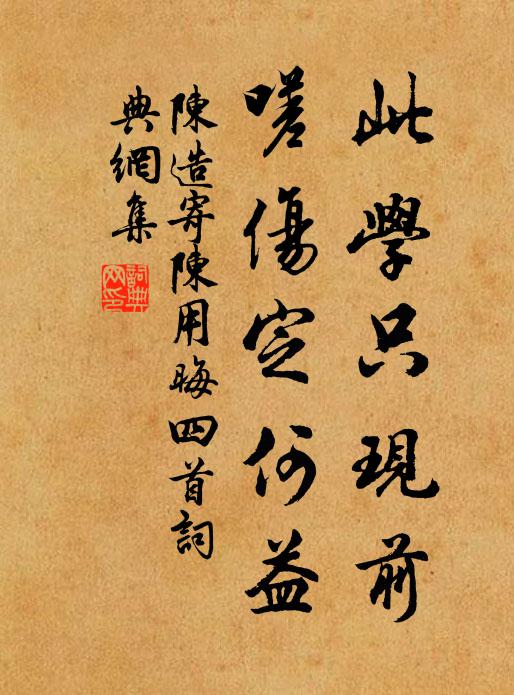 此學只現前
嗟傷定何益
陳造寄陳用晦四首詞
典網集
詞典網印